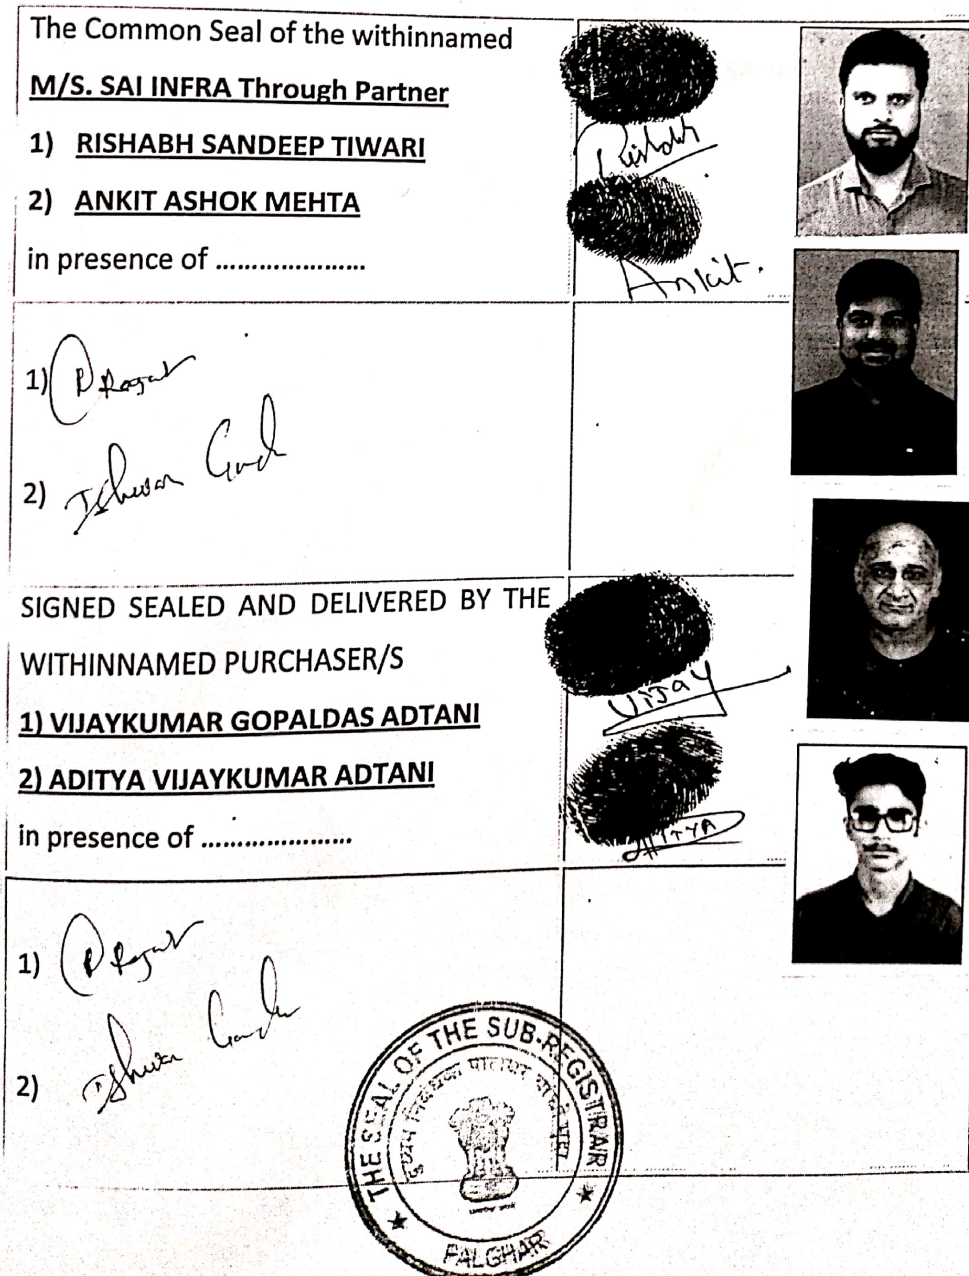 The Common Seal of the withinnamed
M/S. SAI INFRA Through Partner
1) RISHABH SANDEEP TIWARI
2) ANKIT ASHOK MEHTA
in presence of .....................
Rishabh
Ankit.
1)
2) Ishwar
SIGNED SEALED AND DELIVERED BY THE
WITHINNAMED PURCHASER/S
1) VIJAYKUMAR GOPALDAS ADTANI
2) ADITYA VIJAYKUMAR ADTANI
in presence of .....................
VIJAY
ADITYA
1)
2) Ishwar
THE SEAL OF THE SUB-REGISTRAR
PALGHAR